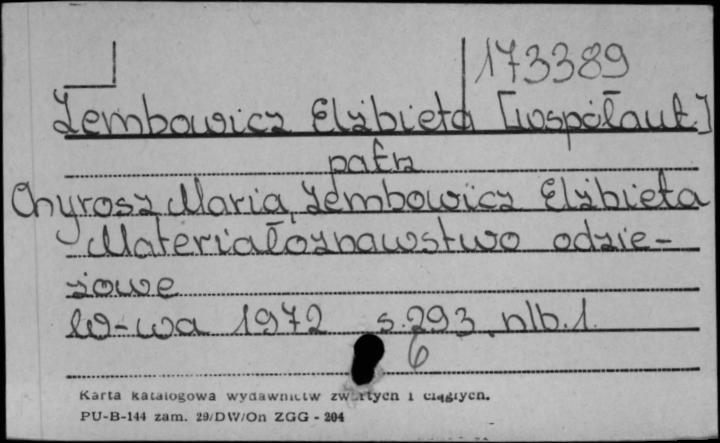 173389
Zembowicz Elżbieta [współaut.]
patrz
Chyrosz Maria, Zembowicz Elżbieta
Materiałoznawstwo odzie-
żowe
W-wa 1972 s. 293, nlb. 1.
6
Karta katalogowa wydawnictw zwartych i ciągłych.
PU-B-144 zam. 29/DW/On ZGG - 204